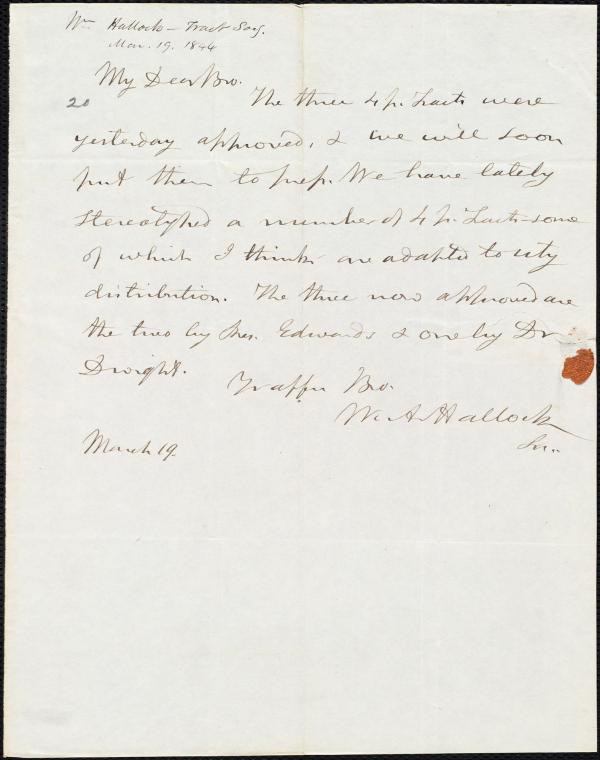 Wm Hallock - Tract Socy.
Mar. 19. 1844
My Dear Bro.
20
The three 4 p. Tracts were
yesterday approved, & we will soon
put them to press. We have lately
stereotyped a number of 4 p. Tracts - some
of which I think are adapted to city
distribution. The three now approved are
the two by Pres. Edwards & one by Dr
Dwight.
Yr affte Bro.
Wm A. Hallock
March 19.